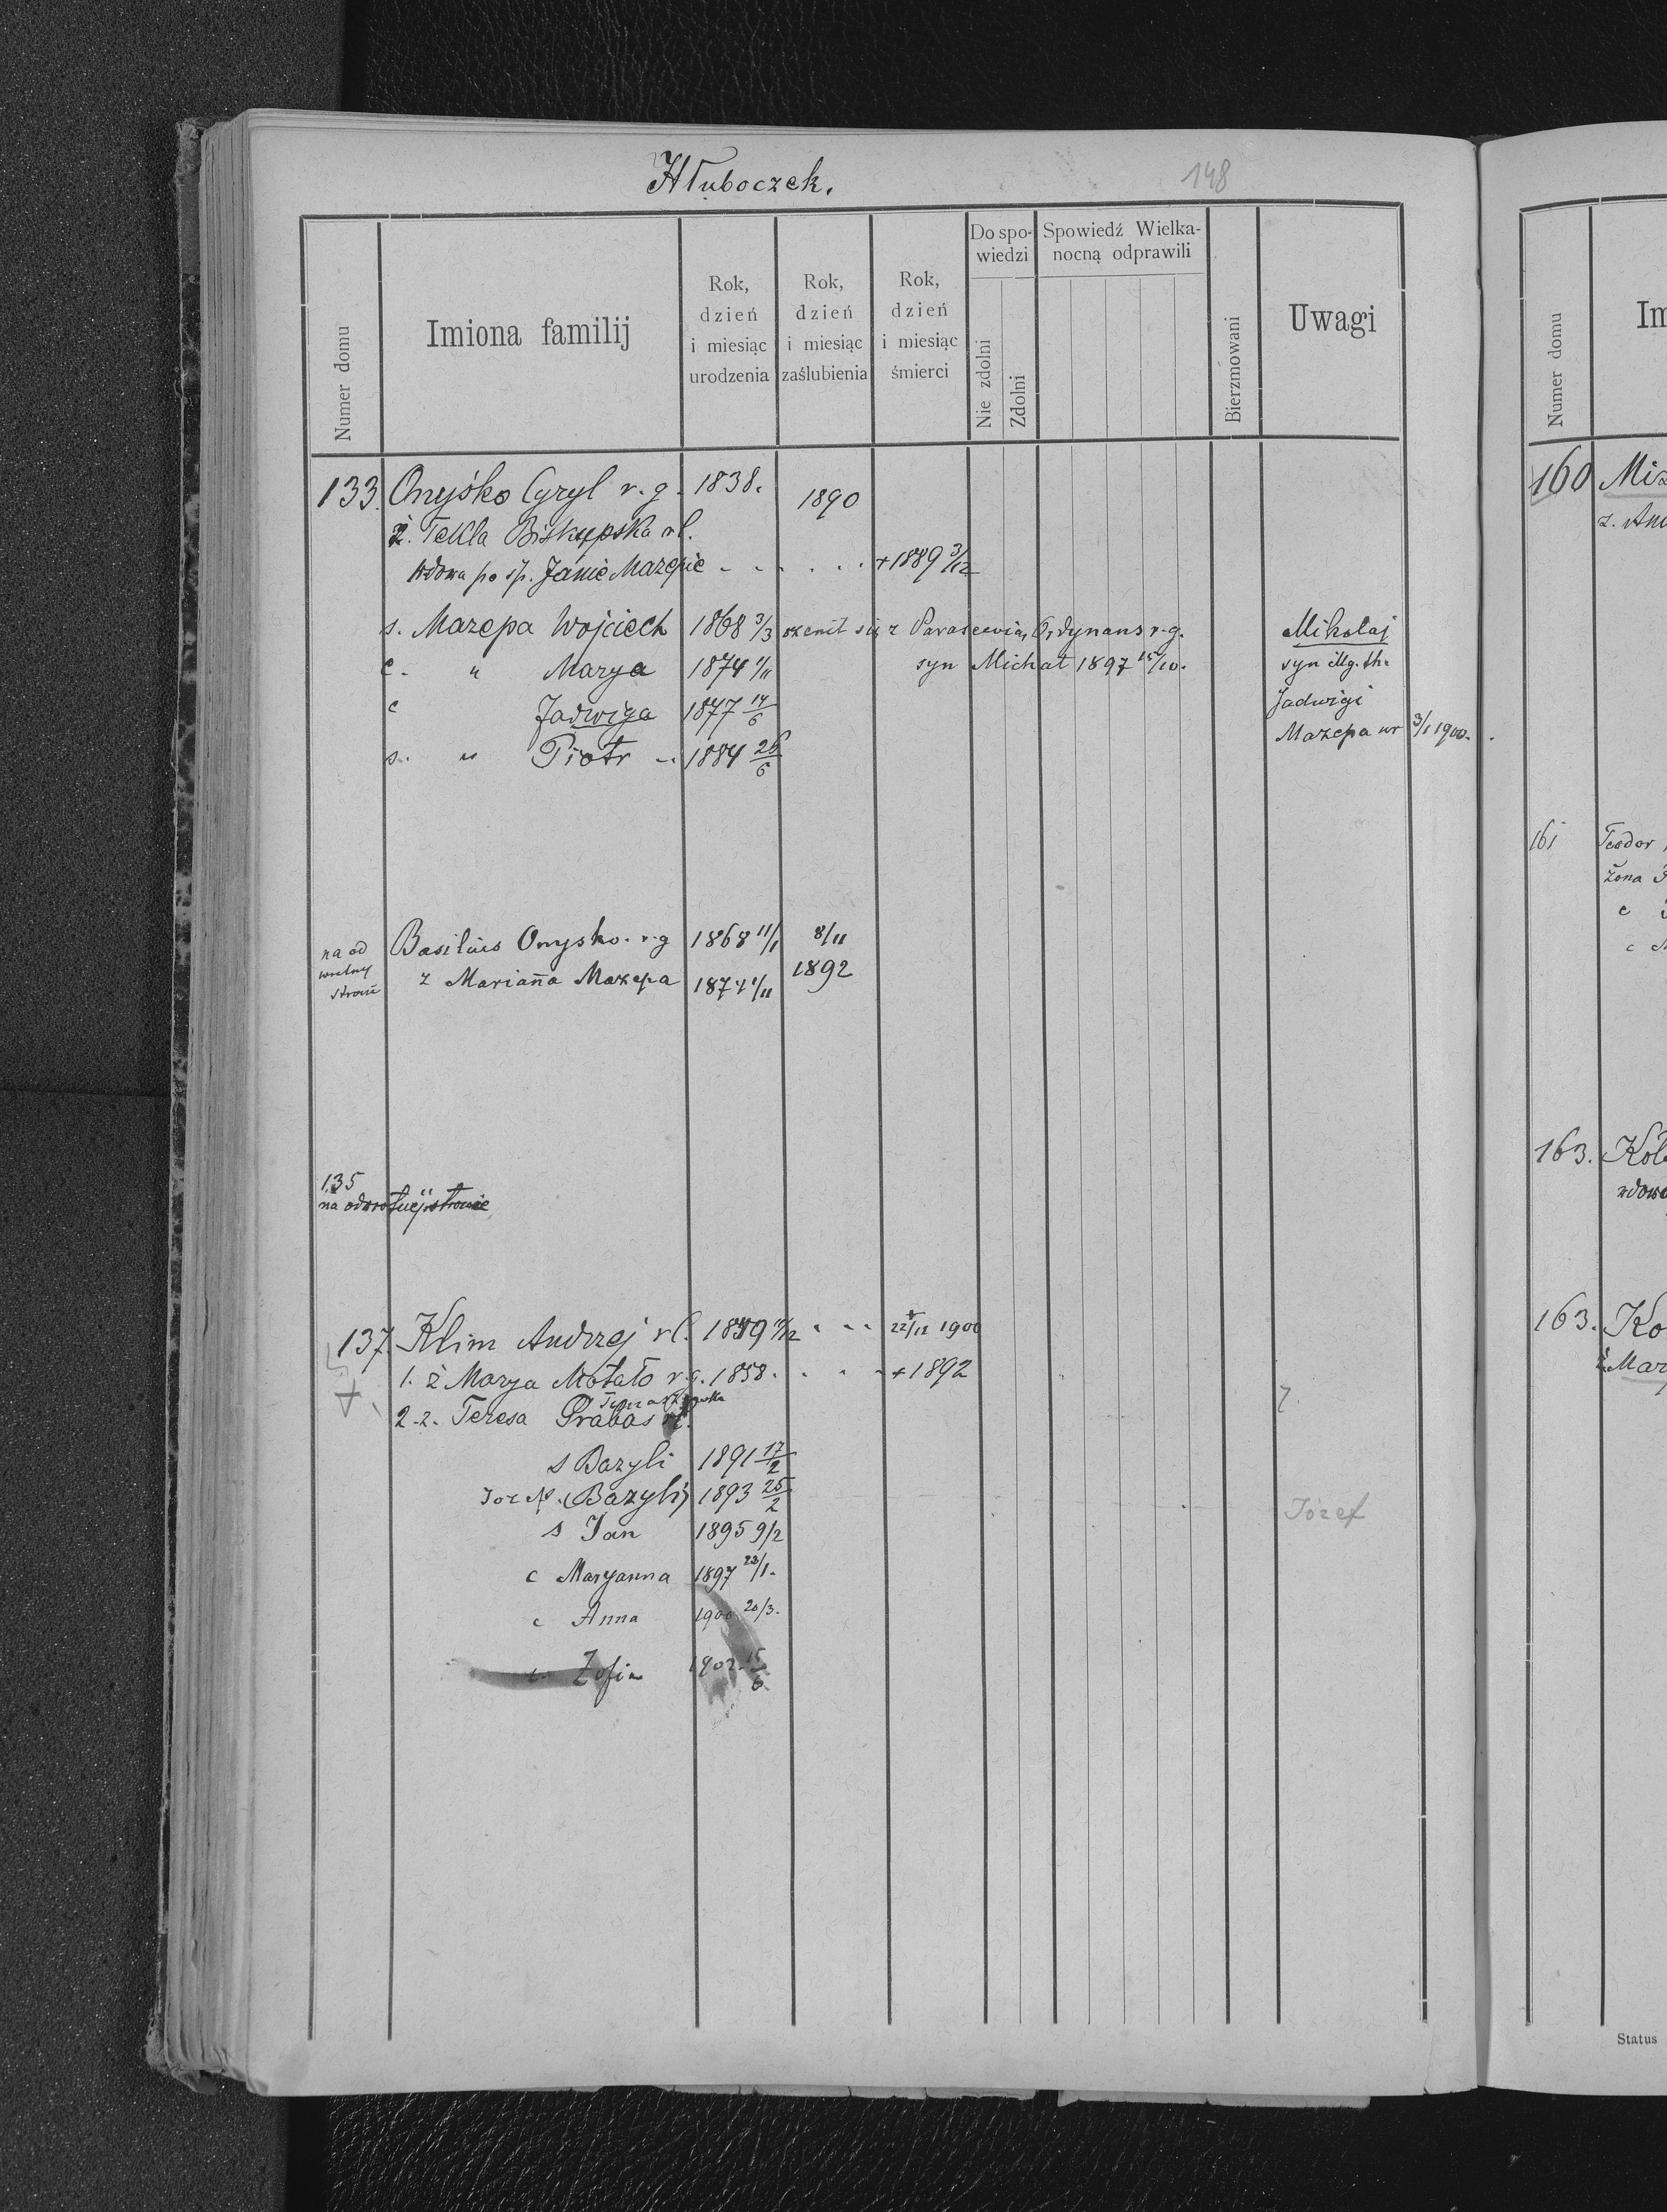 Hłuboczek.
148
Numer domu
Imiona familij
Rok, dzień i miesiąc urodzenia
Rok, dzień i miesiąc zaślubienia
Rok, dzień i miesiąc śmierci
Do spowiedzi
Nie zdolni
Zdolni
Spowiedź Wielkanocną odprawili
Bierzmowani
Uwagi
133. Onyśko Cyryl r. g. 1838. 1890
ż. Tekla Biskupska rl.
wdowa po śp. Janie Mazepie - - . . . . +1889 3/12
s. Mazepa Wojciech 1868 3/3 ożenił się z Parascewią Ordynans r. g.
c. " Marya 1874 1/11 syn Michał 1897 15/10.
c Jadwiga 1877 14/6
s. " Piotr 1884 26/6
Mikołaj
syn illg. th.
Jadwigi
Mazepa ur 3/1 1900.
na od
wrotny
stronie
Basilius Onysko. r. g 1868 11/1 8/11
ż Marianna Mazepa 1874 1/11 1892
135
na odwrotnej stronie
137. Klim Andrzej rl. 1859 - - - + 22/11 1900
1. ż Marya Motało r. g. 1858. . . . +1892
2. ż. Teresa Grabas
s Bazyli 1891 17/2
Józef. (Bazyli) 1893 25/2
Józef
s Jan 1895 9/2
c Maryanna 1897 23/1.
c Anna 1900 20/3.
c. Zofia 1902. 15/6
Numer domu
Im
160 Mis
161 Teodor
żona
c
c
163. Kob
wdowa
163. Ko
ż. Mar
Status